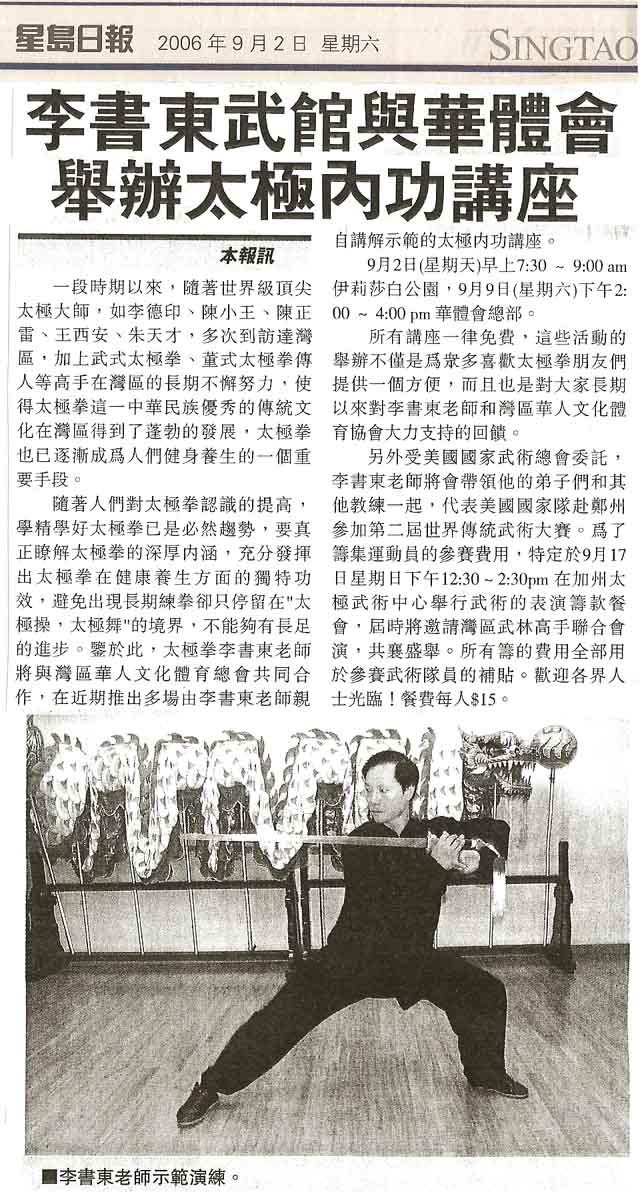 星島日報 2006年9月2日 星期六 SINGTAO
李書東武館與華體會
舉辦太極內功講座
本報訊
一段時期以來，隨著世界級頂尖
太極大師，如李德印、陳小王、陳正
雷、王西安、朱天才，多次到訪達灣
區，加上武式太極拳、董式太極拳傳
人等高手在灣區的長期不懈努力，使
得太極拳這一中華民族優秀的傳統文
化在灣區得到了蓬勃的發展，太極拳
也已逐漸成爲人們健身養生的一個重
要手段。
隨著人們對太極拳認識的提高，
學精學好太極拳已是必然趨勢，要真
正瞭解太極拳的深厚内涵，充分發揮
出太極拳在健康養生方面的獨特功
效，避免出現長期練拳卻只停留在"太
極操，太極舞"的境界，不能夠有長足
的進步。鑒於此，太極拳李書東老師
將與灣區華人文化體育總會共同合
作，在近期推出多場由李書東老師親
自講解示範的太極内功講座。
9月2日(星期天)早上7:30 ~ 9:00 am
伊莉莎白公園，9月9日(星期六)下午2:
00 ~ 4:00 pm 華體會總部。
所有講座一律免費，這些活動的
舉辦不僅是爲衆多喜歡太極拳朋友們
提供一個方便，而且也是對大家長期
以來對李書東老師和灣區華人文化體
育協會大力支持的回饋。
另外受美國國家武術總會委託，
李書東老師將會帶領他的弟子們和其
他教練一起，代表美國國家隊赴鄭州
參加第二屆世界傳統武術大賽。爲了
籌集運動員的參賽費用，特定於9月17
日星期日下午12:30 ~ 2:30pm 在加州太
極武術中心舉行武術的表演籌款餐
會，屆時將邀請灣區武林高手聯合會
演，共襄盛舉。所有籌的費用全部用
於參賽武術隊員的補貼。歡迎各界人
士光臨！餐費每人$15。
■李書東老師示範演練。